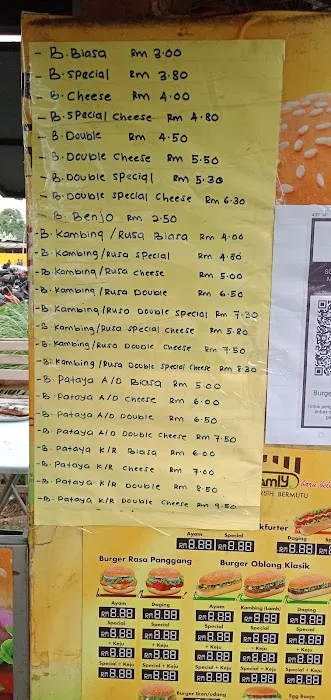 - B. Biasa RM 3.00
- B. Special RM 3.80
- B. Cheese RM 4.00
- B. Special Cheese RM 4.80
- B. Double RM 4.50
- B. Double Cheese RM 5.50
- B. Double Special RM 5.30
- B. Double Special Cheese RM 6.30
- B. Benjo RM 2.50
- B. Kambing / Rusa Biasa RM 4.00
- B. Kambing / Rusa Special RM 4.80
- B. Kambing / Rusa Cheese RM 5.00
- B. Kambing / Rusa Double RM 6.50
- B. Kambing / Ruso Double Special RM 7.30
- B. Kambing / Rusa Special Cheese RM 5.80
- B. Kambing / Rusa Double Cheese RM 7.50
- B. Kambing / Rusa Double Special Cheese RM 8.30
- B. Pataya A/D Biasa RM 5.00
- B. Pataya A/D Cheese RM 6.00
- B. Pataya A/D Double RM 6.50
- B. Pataya A/D Double Cheese RM 7.50
- B. Pataya K/R Biasa RM 6.00
- B. Pataya K/R Cheese RM 7.00
- B. Pataya K/R Double RM 8.50
- B. Pataya K/R Double Cheese RM 9.50
BERMUTU
Ayam Special
RM 8.88 RM 8.88 RM 8.88
Burger Rasa Panggang Burger Oblong Klasik
Ayam Daging Ayam Kambing (Lamb) Daging
RM 8.88 RM 8.88 RM 8.88 RM 8.88 RM 8.88
Special Special Special Special Special
RM 8.88 RM 8.88 RM 8.88 RM 8.88 RM 8.88
+ Keju + Keju + Keju + Keju + Keju
RM 8.88 RM 8.88 RM 8.88 RM 8.88 RM 8.88
Special + Keju Special + Keju Special + Keju Special + Keju Special + Keju
RM 8.88 RM 8.88 RM 8.88 RM 8.88 RM 8.88
Burger Ikan/udang Egg Banjo